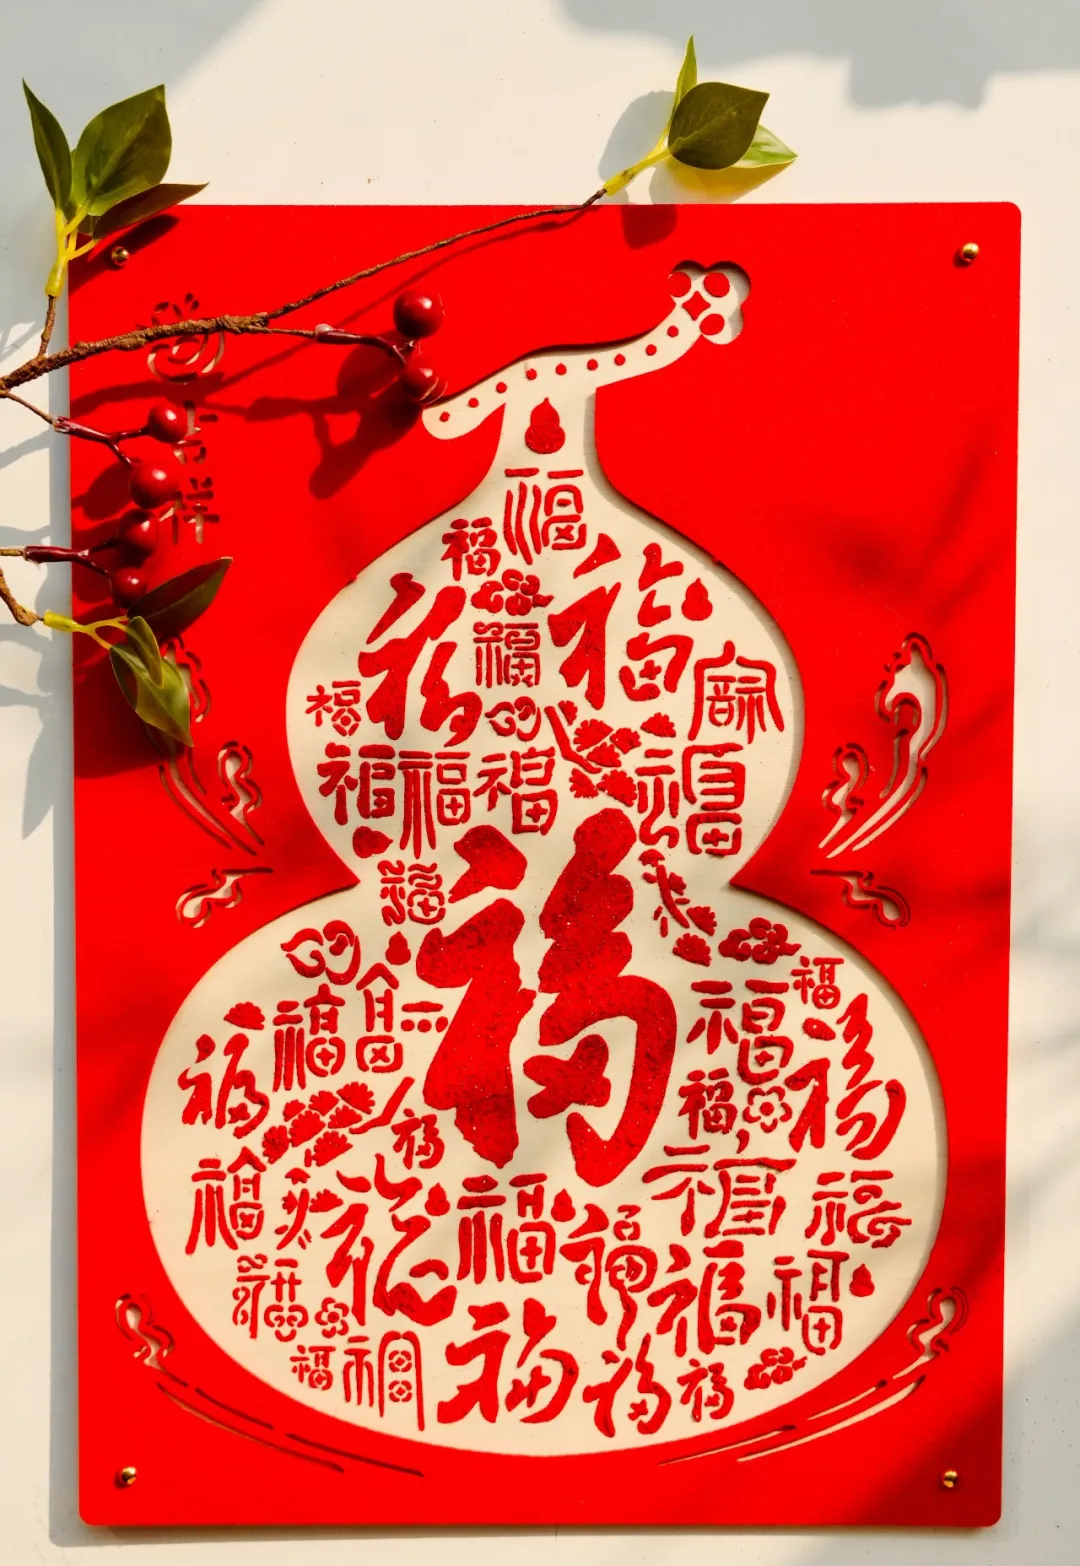 吉祥
福
福
福 福
福
福 福
福 福 福 福
福
福
福 福 福
福 福 福
福 福
福
福 福 福
福 福 福
福 福 福 福
福 福 福 福 福